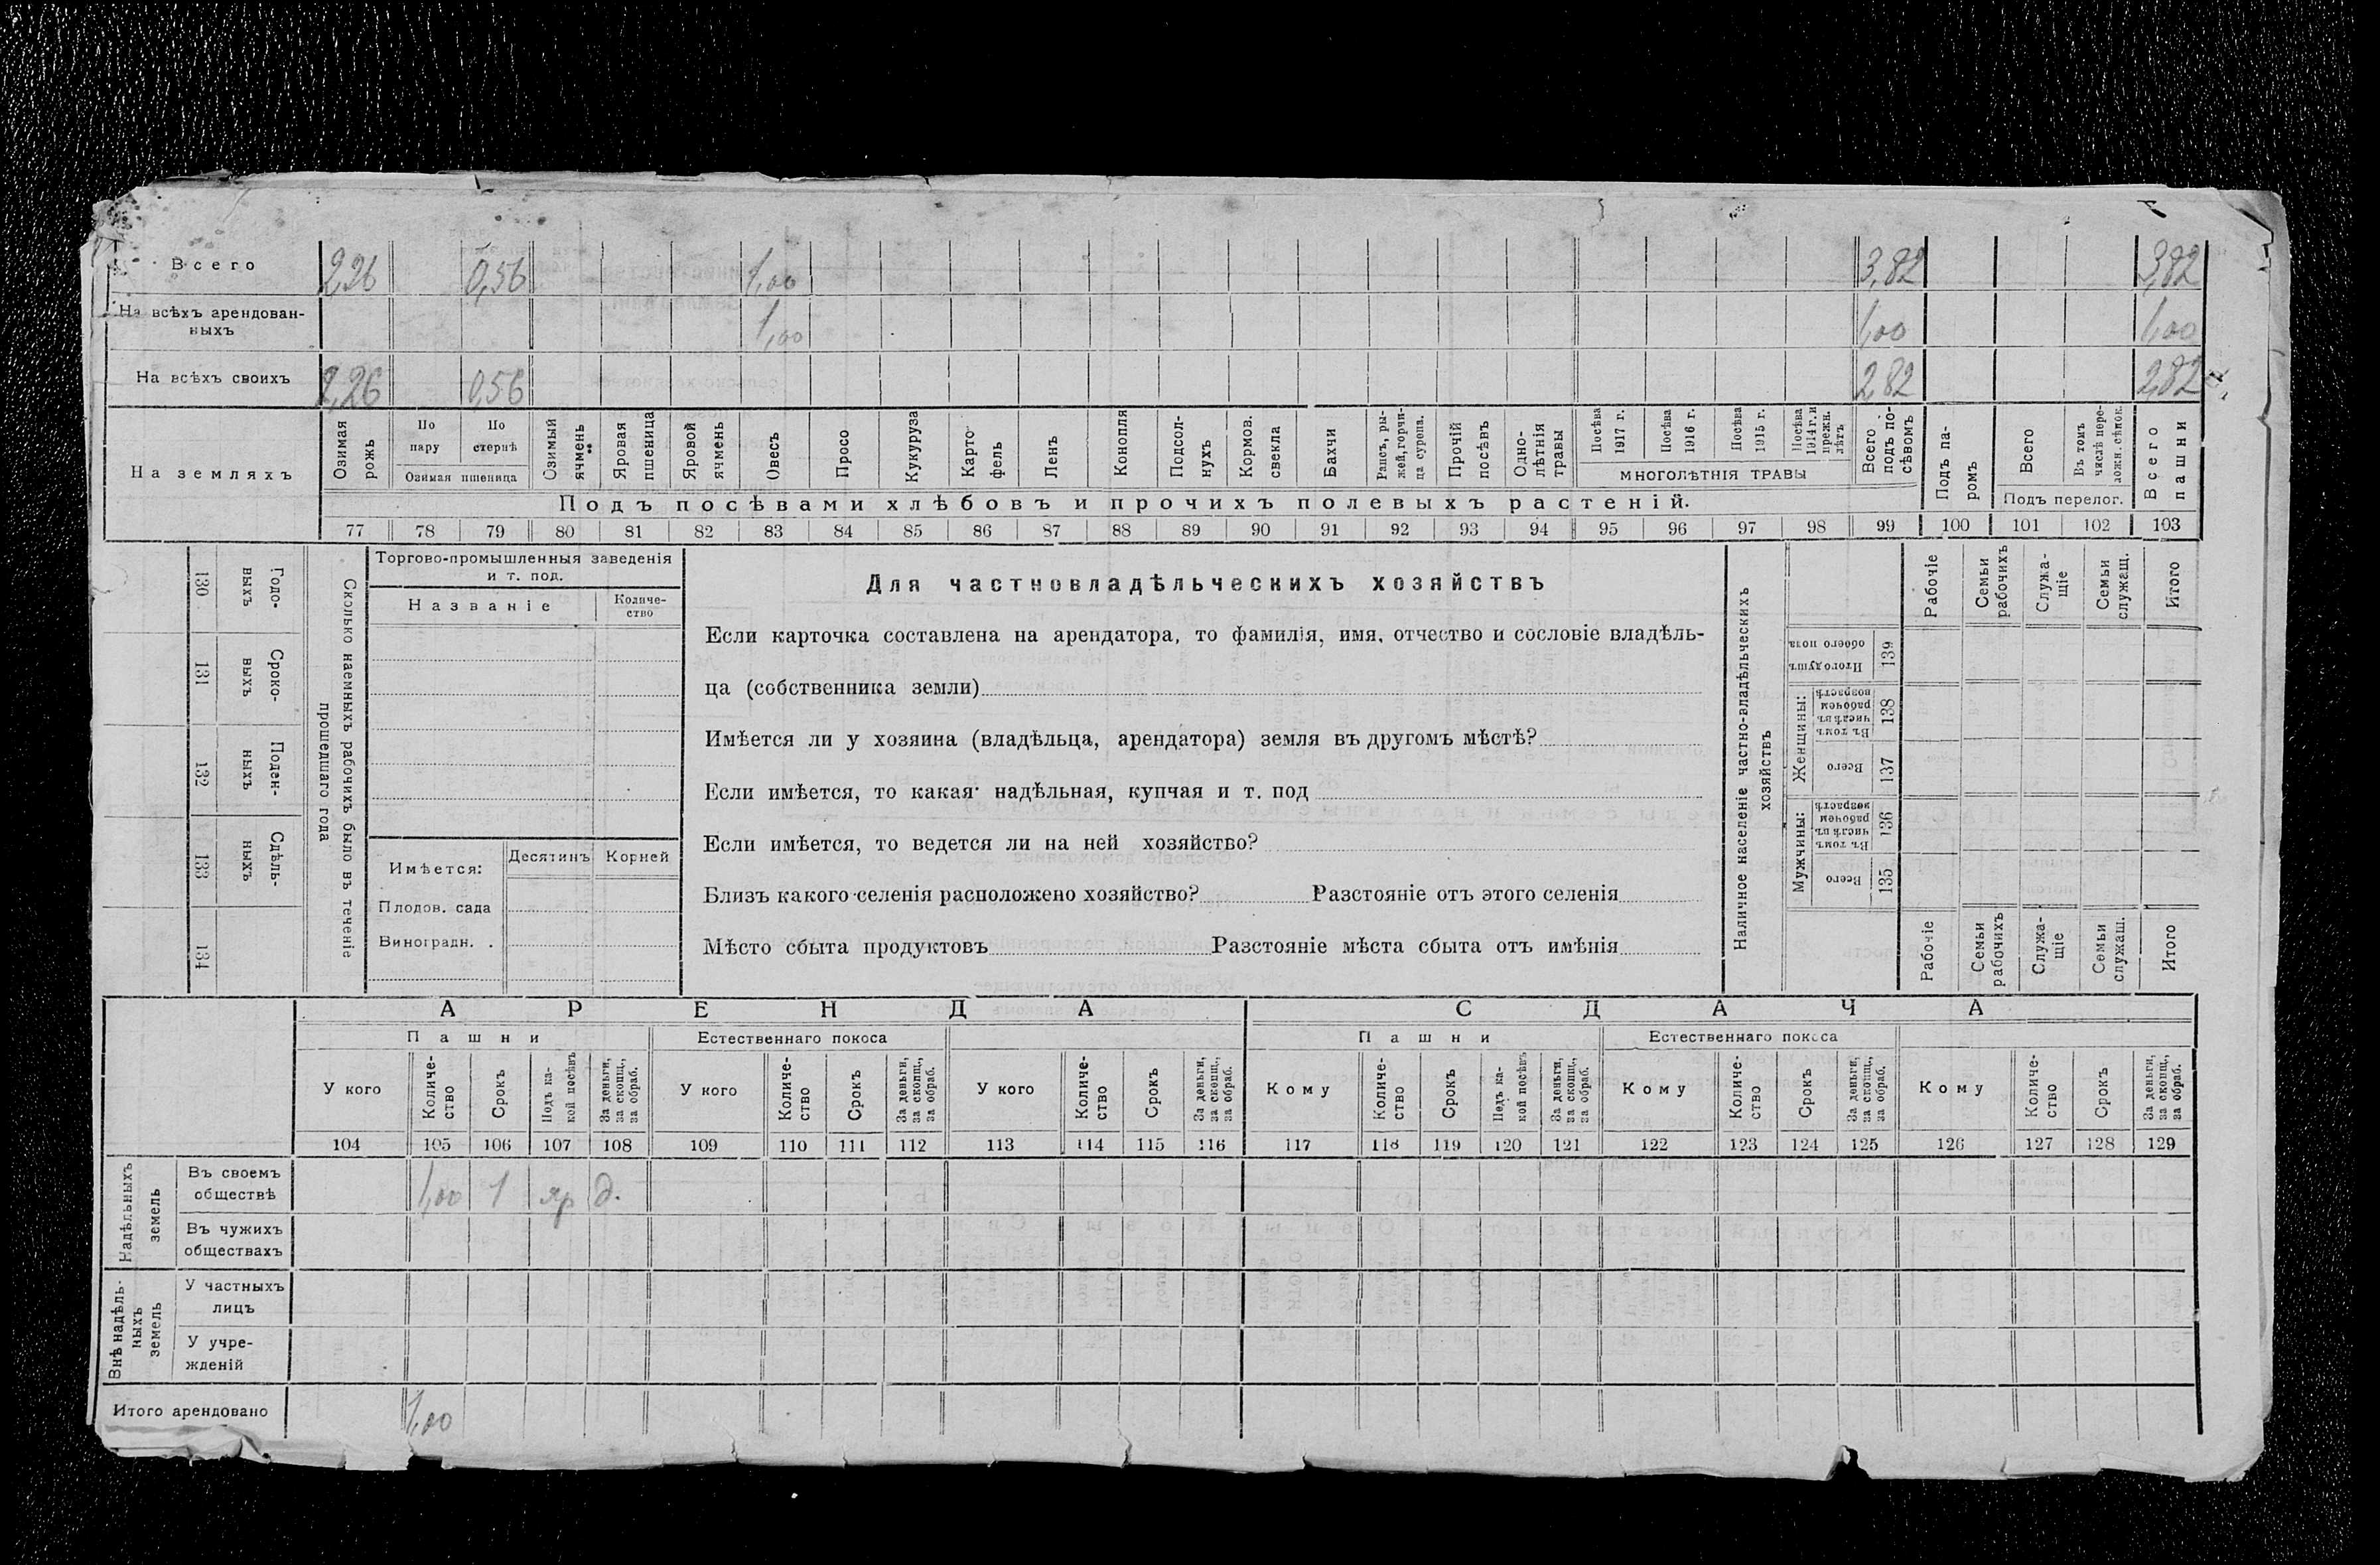 Всего 2,26 0,56 1,00 3,82 3,82
На всѣхъ арендован-
ныхъ 1,00 1,00 1,00
На всѣхъ своихъ 2,26 0,56 2,82 2,82
На земляхъ
Озимая рожь
По пару
По стернѣ
Озимая пшеница
Озимый ячмень
Яровая пшеница
Яровой ячмень
Овесъ
Просо
Кукуруза
Карто-
фель
Ленъ
Конопля
Подсол-
нухъ
Кормов.
свекла
Бахчи
Рапсъ, ры-
жей, горчи-
ца сурепа.
Прочій
посѣвъ
Одно-
лѣтнія
травы
Посѣва 1917 г.
Посѣва 1916 г.
Посѣва 1915 г.
Посѣва 1914 г. и прежн. лѣтъ
МНОГОЛѢТНІЯ ТРАВЫ
Всего подъ по-
сѣвомъ
Подъ па-
ромъ
Всего
Въ томъ числѣ пере-
ложн. сѣнок.
Подъ перелог.
Всего пашни
Подъ посѣвами хлѣбовъ и прочихъ полевыхъ растеній.
77 78 79 80 81 82 83 84 85 86 87 88 89 90 91 92 93 94 95 96 97 98 99 100 101 102 103
130 Годо-
выхъ
131 Сроко-
выхъ
132 Поден-
ныхъ
133 Сдѣль-
ныхъ
134
Сколько наемныхъ рабочихъ было въ теченіе
прошедшаго года
Торгово-промышленныя заведенія
и т. под.
Названіе
Количе-
ство
Имѣется: Десятинъ Корней
Плодов. сада
Виноградн. .
Для частновладѣльческихъ хозяйствъ
Если карточка составлена на арендатора, то фамилія, имя, отчество и сословіе владѣль-
ца (собственника земли)
Имѣется ли у хозяина (владѣльца, арендатора) земля въ другомъ мѣстѣ?
Если имѣется, то какая: надѣльная, купчая и т. под
Если имѣется, то ведется ли на ней хозяйство?
Близъ какого селенія расположено хозяйство? Разстояніе отъ этого селенія
Мѣсто сбыта продуктовъ Разстояніе мѣста сбыта отъ имѣнія
Наличное населеніе частно-владѣльческихъ
хозяйствъ
Рабочіе
Семьи рабочихъ
Служа-
щіе
Семьи служащ.
Итого
Итого душъ обоего пола 139
Женщины:
Въ томъ числѣ въ рабочем возрастѣ 138
Всего 137
Мужчины:
Въ томъ числѣ въ рабочем возрастѣ 136
Всего 135
Рабочіе
Семьи рабочихъ
Служа-
щіе
Семьи служащ.
Итого
АРЕНДА СДАЧА
Пашни Естественнаго покоса Пашни Естественнаго покоса
У кого
Количе-
ство
Срокъ
Подъ ка-
кой посѣвъ
За деньги, за скопщ., за обраб.
У кого
Количе-
ство
Срокъ
За деньги, за скопщ., за обраб.
У кого
Количе-
ство
Срокъ
За деньги, за скопщ., за обраб.
Кому
Количе-
ство
Срокъ
Подъ ка-
кой посѣвъ
За деньги, за скопщ., за обраб.
Кому
Количе-
ство
Срокъ
За деньги, за скопщ., за обраб.
Кому
Количе-
ство
Срокъ
За деньги, за скопщ., за обраб.
104 105 106 107 108 109 110 111 112 113 114 115 116 117 118 119 120 121 122 123 124 125 126 127 128 129
Надѣльныхъ
земель
Въ своемъ
обществѣ 1,00 1 яр д.
Въ чужихъ
обществахъ
Внѣ надѣль-
ныхъ
земель
У частныхъ
лицъ
У учре-
жденій
Итого арендовано 1,00